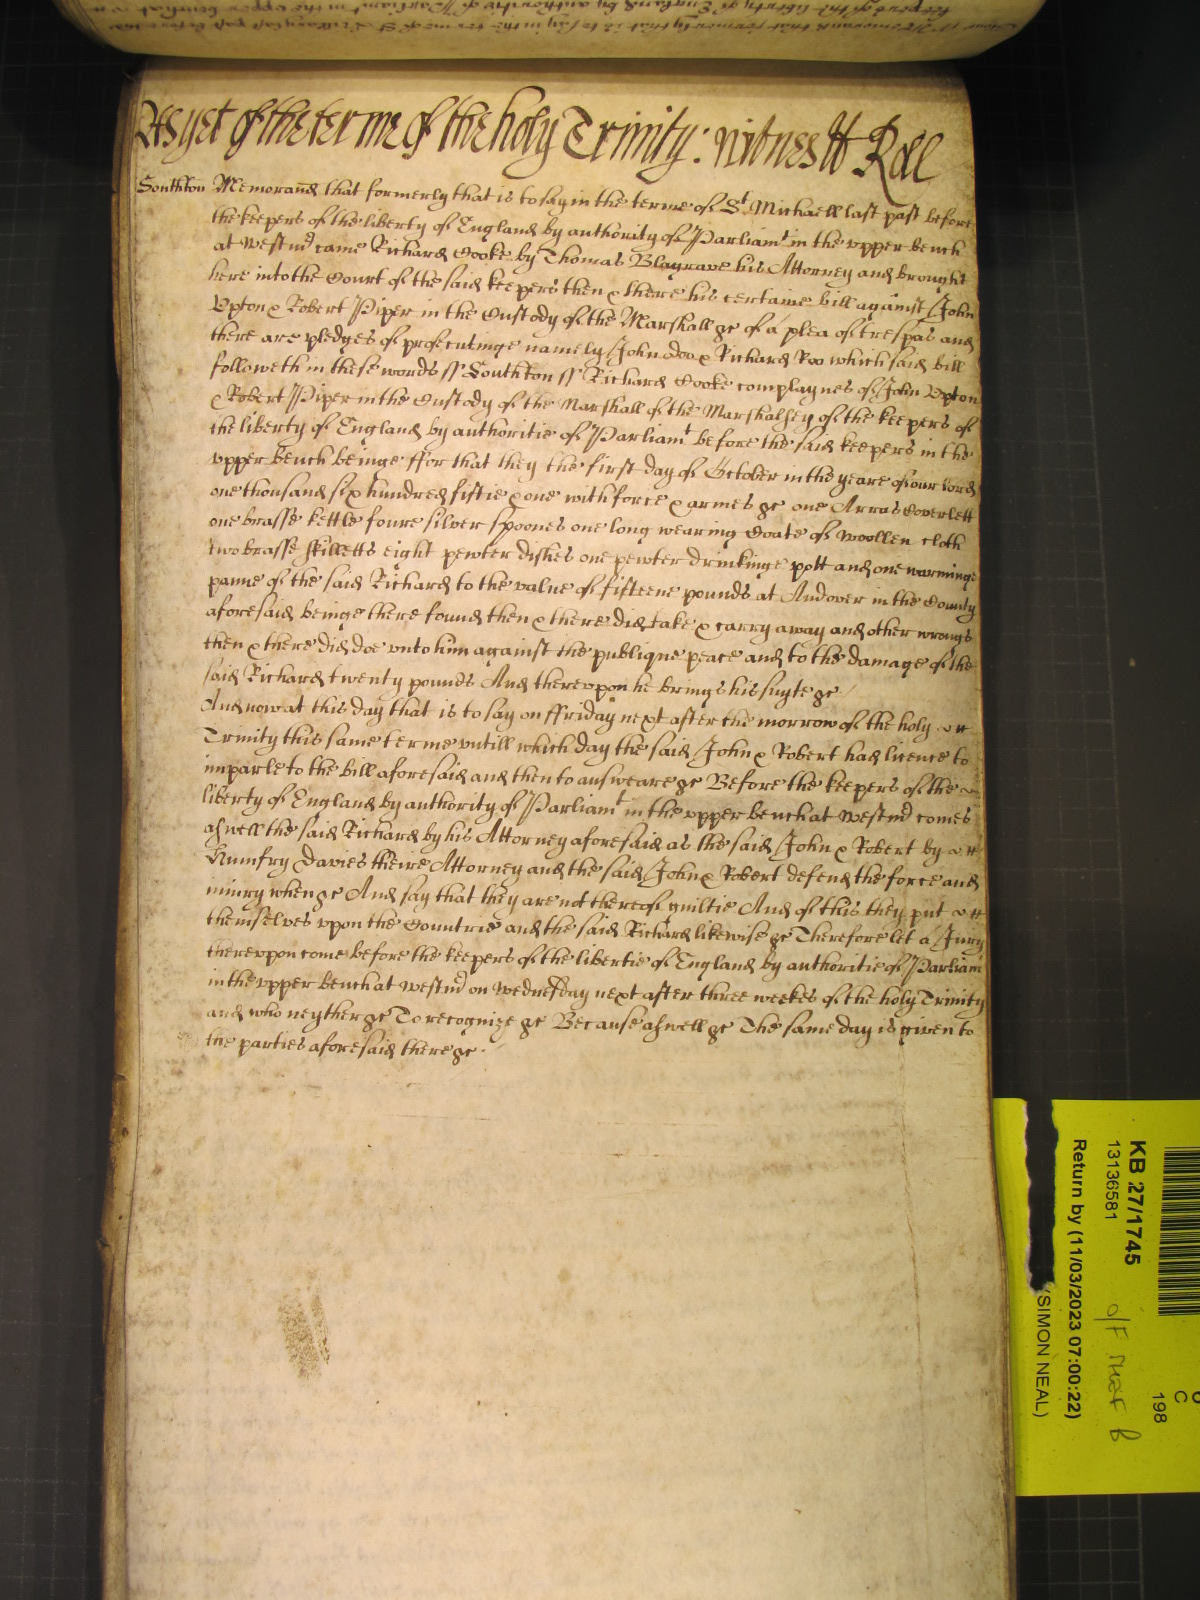 As yet of the terme of the holy Trinity: witness H Roll
Southton Memorand that formerly that is to say in the terme of St Michaell last past before
the keepers of the liberty of England by authority of Parliamt in the upper bench
at Westmr came Richard Cooke by Thomas Blagrave his Attorney and brought
here into the Court of the said keepers then & there his certaine bill against John
Upton & Robert Piper in the Custody of the Marshall &c of a plea of trespas and
there are pledges of prosecutinge namely John doo & Richard Roo which said bill
followeth in these words ss Southton ss Richard Cooke complaynes of John Upton
& Robert Piper in the Custody of the Marshall of the Marshalsey of the keepers of
the liberty of England by authoritie of Parliamt before the said keepers in the
upper bench beinge ffor that they the first day of October in the yeare of our Lord
one thousand six hundred fiftie & one with force & armes &c one Arras Coverlett
one brasse kettle foure silver spoones one long wearing Coate of woollen cloth
two brasse skilletts eight pewter dishes one pewter drinkinge pott and one warminge
panne of the said Richard to the value of fifteene pounds at Andover in the County
aforesaid beinge there found then & there did take & carry away and other wrongs
then & there did doe unto him against the publique peace and to the damage of the
said Richard twenty pounds And thereupon he brings his suyte &c
And now at this day that is to say on ffriday next after the morrow of the holy
Trinity this same terme untill which day the said John & Robert had licence to
imparle to the bill aforesaid and then to answeare &c Before the keepers of the
liberty of England by authority of Parliamt in the upper bench at Westmr comes
aswell the said Richard by his Attorney aforesaid as the said John & Robert by
Humfry Davies theire Attorney and the said John & Robert defend the force and
iniury when &c And say that they are not thereof guiltie And of this they put
themselves upon the Countrie and the said Richard likewise &c Therefore let a Jury
thereupon come before the keepers of the libertie of England by authoritie of Parliam
in the upper bench at Westmr on Wednesday next after three weekes of the holy Trinity
and who neyther &c To recognize &c Because aswell &c The same day is given to
the parties aforesaid there &c
KB 27/1745
13136581
Return by (11/03/2023 07:00:22)
(SIMON NEAL)
C
198